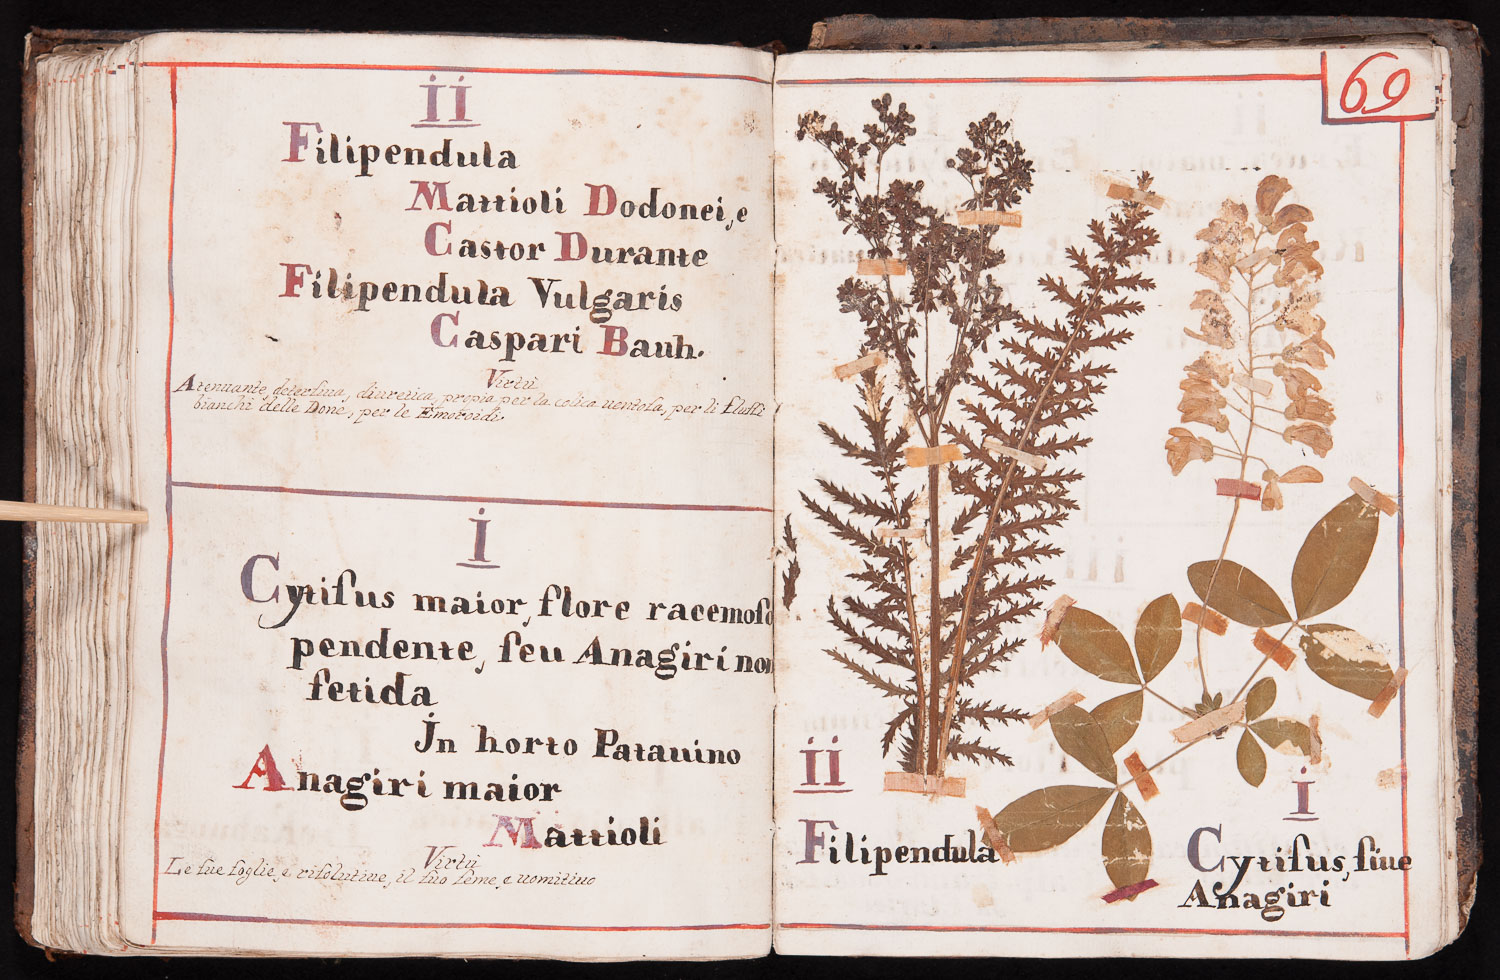 ii
Filipendula
Mattioli Dodonei, e
Castor Durante
Filipendula Vulgaris
Caspari Bauh.
Virtù
Atenuante, detersiua, diuretica, propia per la colica uentosa, per li flussi
bianchi delle Done, per le Emoroidi
i
Cytiſus maior, flore racemoſo
pendente, ſeu Anagiri non
fetida
Jn horto Patauino
Anagiri maior
Mattioli
Virtù
Le sue foglie, e risolutiue, il suo seme, e uomitiuo
69
ii
Filipendula
i
Cytiſus, ſiue
Anagiri